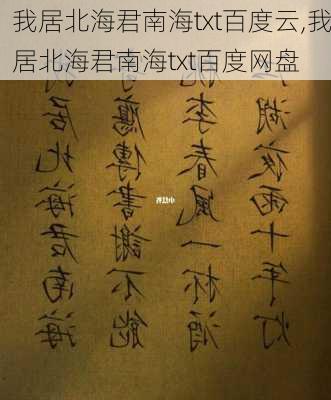 我居北海君南海txt百度云,我
居北海君南海txt百度网盘
我居北海君南海
寄鴈傳書謝不能
桃李春風一杯酒
江湖夜雨十年灯
小红书